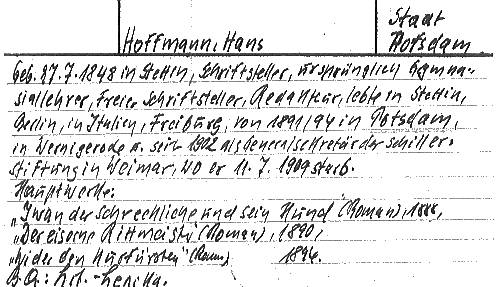 Stadt
Hoffmann, Hans Potsdam
Geb. 27.7.1848 in Stettin, Schriftsteller, ursprünglich Gymna-
siallehrer, freier Schriftsteller, Redakteur, lebte in Stettin,
Berlin, in Italien, Freiburg, von 1891/94 in Potsdam,
in Wernigerode u. seit 1902 als Generalsekretär der Schiller-
stiftung in Weimar, wo er 11.7.1909 starb.
Hauptwerke:
"Iwan der Schreckliche und sein Hund" (Roman), 1888,
"Der eiserne Rittmeister" (Roman), 1890,
"Wider den Kurfürsten" (Roman) 1894.